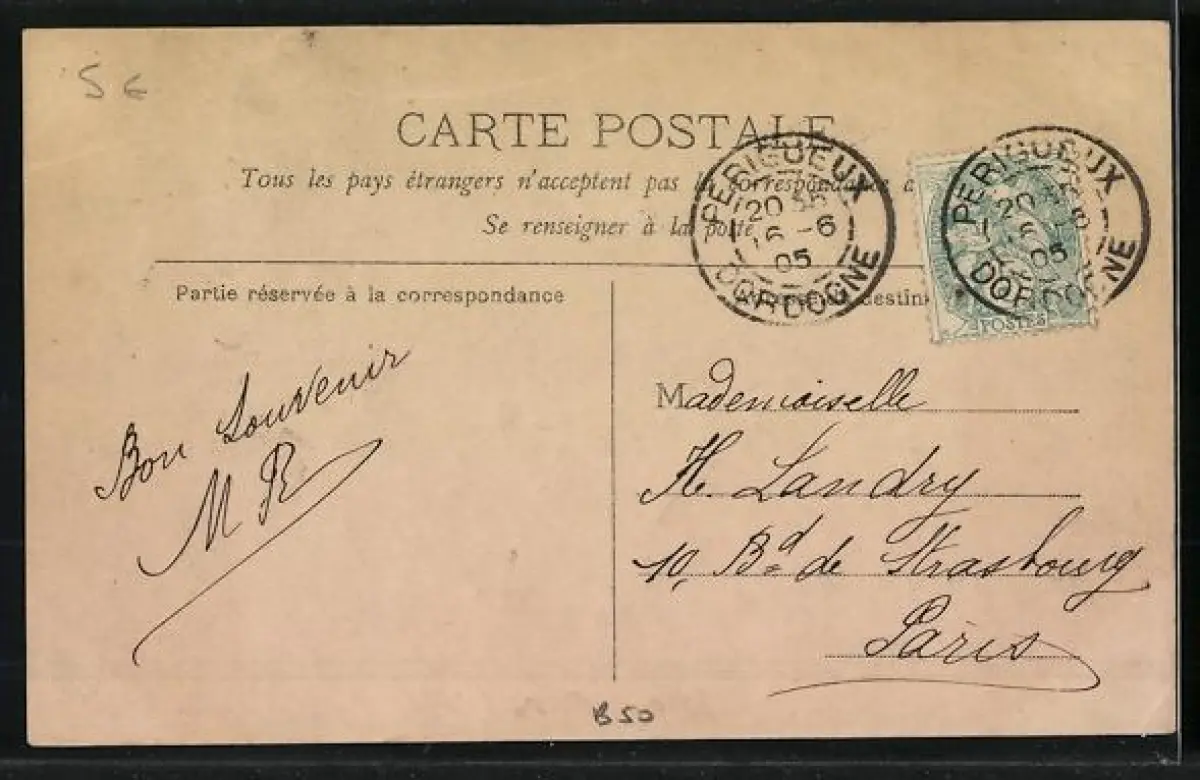 5 €
CARTE POSTALE
Tous les pays étrangers n'acceptent pas la correspondance a
Se renseigner à la poste
PERIGUEUX
20 35
16 -6
05
DORDOGNE
PERIGUEUX
20
16 -6
05
DORDOGNE
POSTES
Partie réservée à la correspondance
destin
Bon Souvenir
M R
Mademoiselle
H. Landry
10, Bd de Strasbourg
Paris
B50